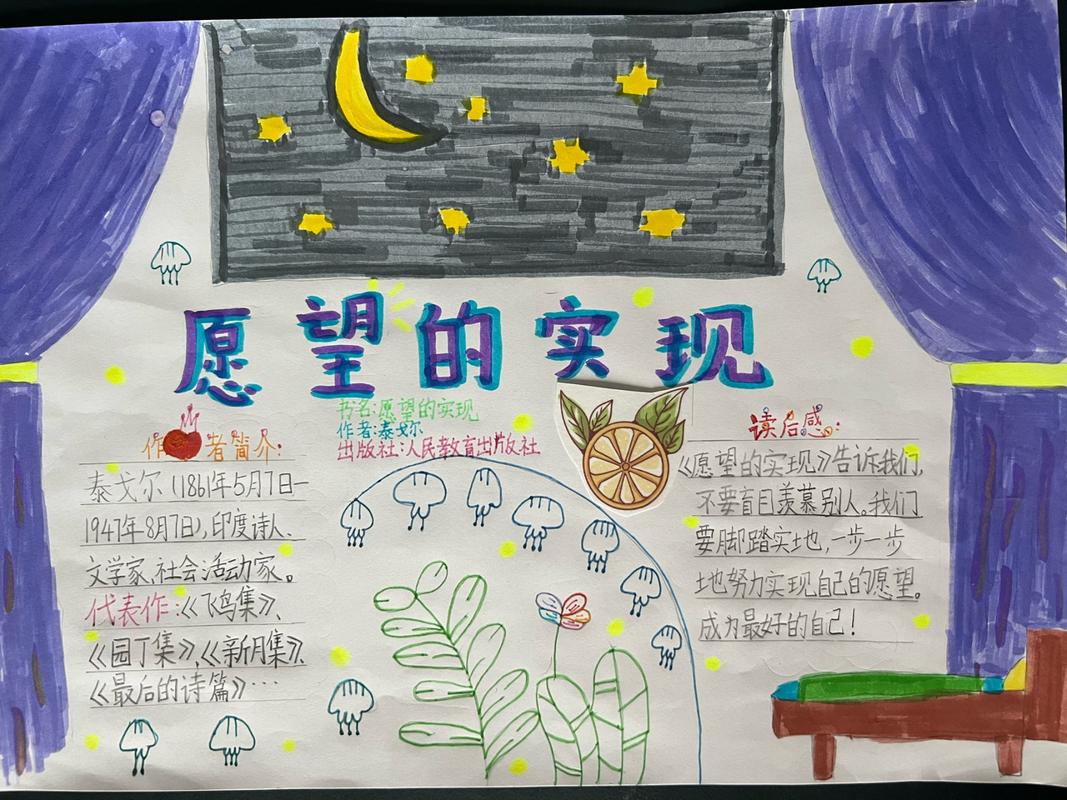 愿望的实现
书名:愿望的实现
作者:泰戈尔
出版社:人民教育出版社
作者简介:
泰戈尔(1861年5月7日-
1941年8月7日),印度诗人、
文学家、社会活动家。
代表作:《飞鸟集》、
《园丁集》、《新月集》、
《最后的诗篇》…
读后感:
《愿望的实现》告诉我们,
不要盲目羡慕别人。我们
要脚踏实地,一步一步
地努力实现自己的愿望。
成为最好的自己!